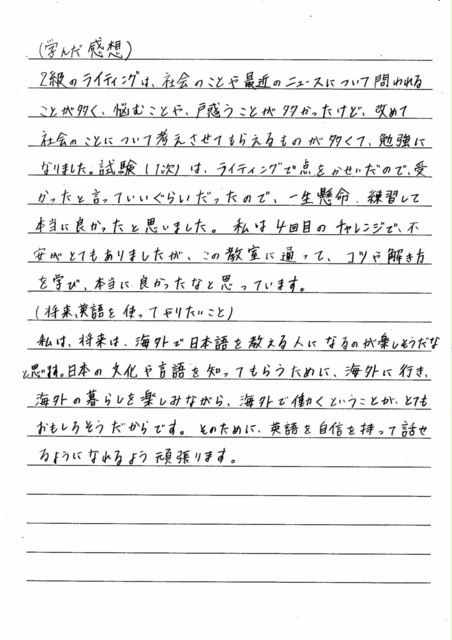 (学んだ感想)
2級のライティングは、社会のことや最近のニュースについて問われる
ことが多く、悩むことや、戸惑うことが多かったけど、改めて
社会のことについて考えさせてもらえるものが多くて、勉強に
なりました。試験(1次)は、ライティングで点をかせいだので、受
かったと言っていいぐらいだったので、一生懸命、練習して
本当に良かったと思いました。私は4回目のチャレンジで、不
安がとてもありましたが、この教室に通って、コツや解き方
を学び、本当に良かったなと思っています。
(将来、英語を使ってやりたいこと)
私は、将来は、海外で日本語を教える人になるのが楽しそうだな
と思います。日本の文化や言語を知ってもらうために、海外に行き、
海外の暮らしを楽しみながら、海外で働くということが、とても
おもしろそうだからです。そのために、英語を自信を持って話せ
るようになれるよう頑張ります。